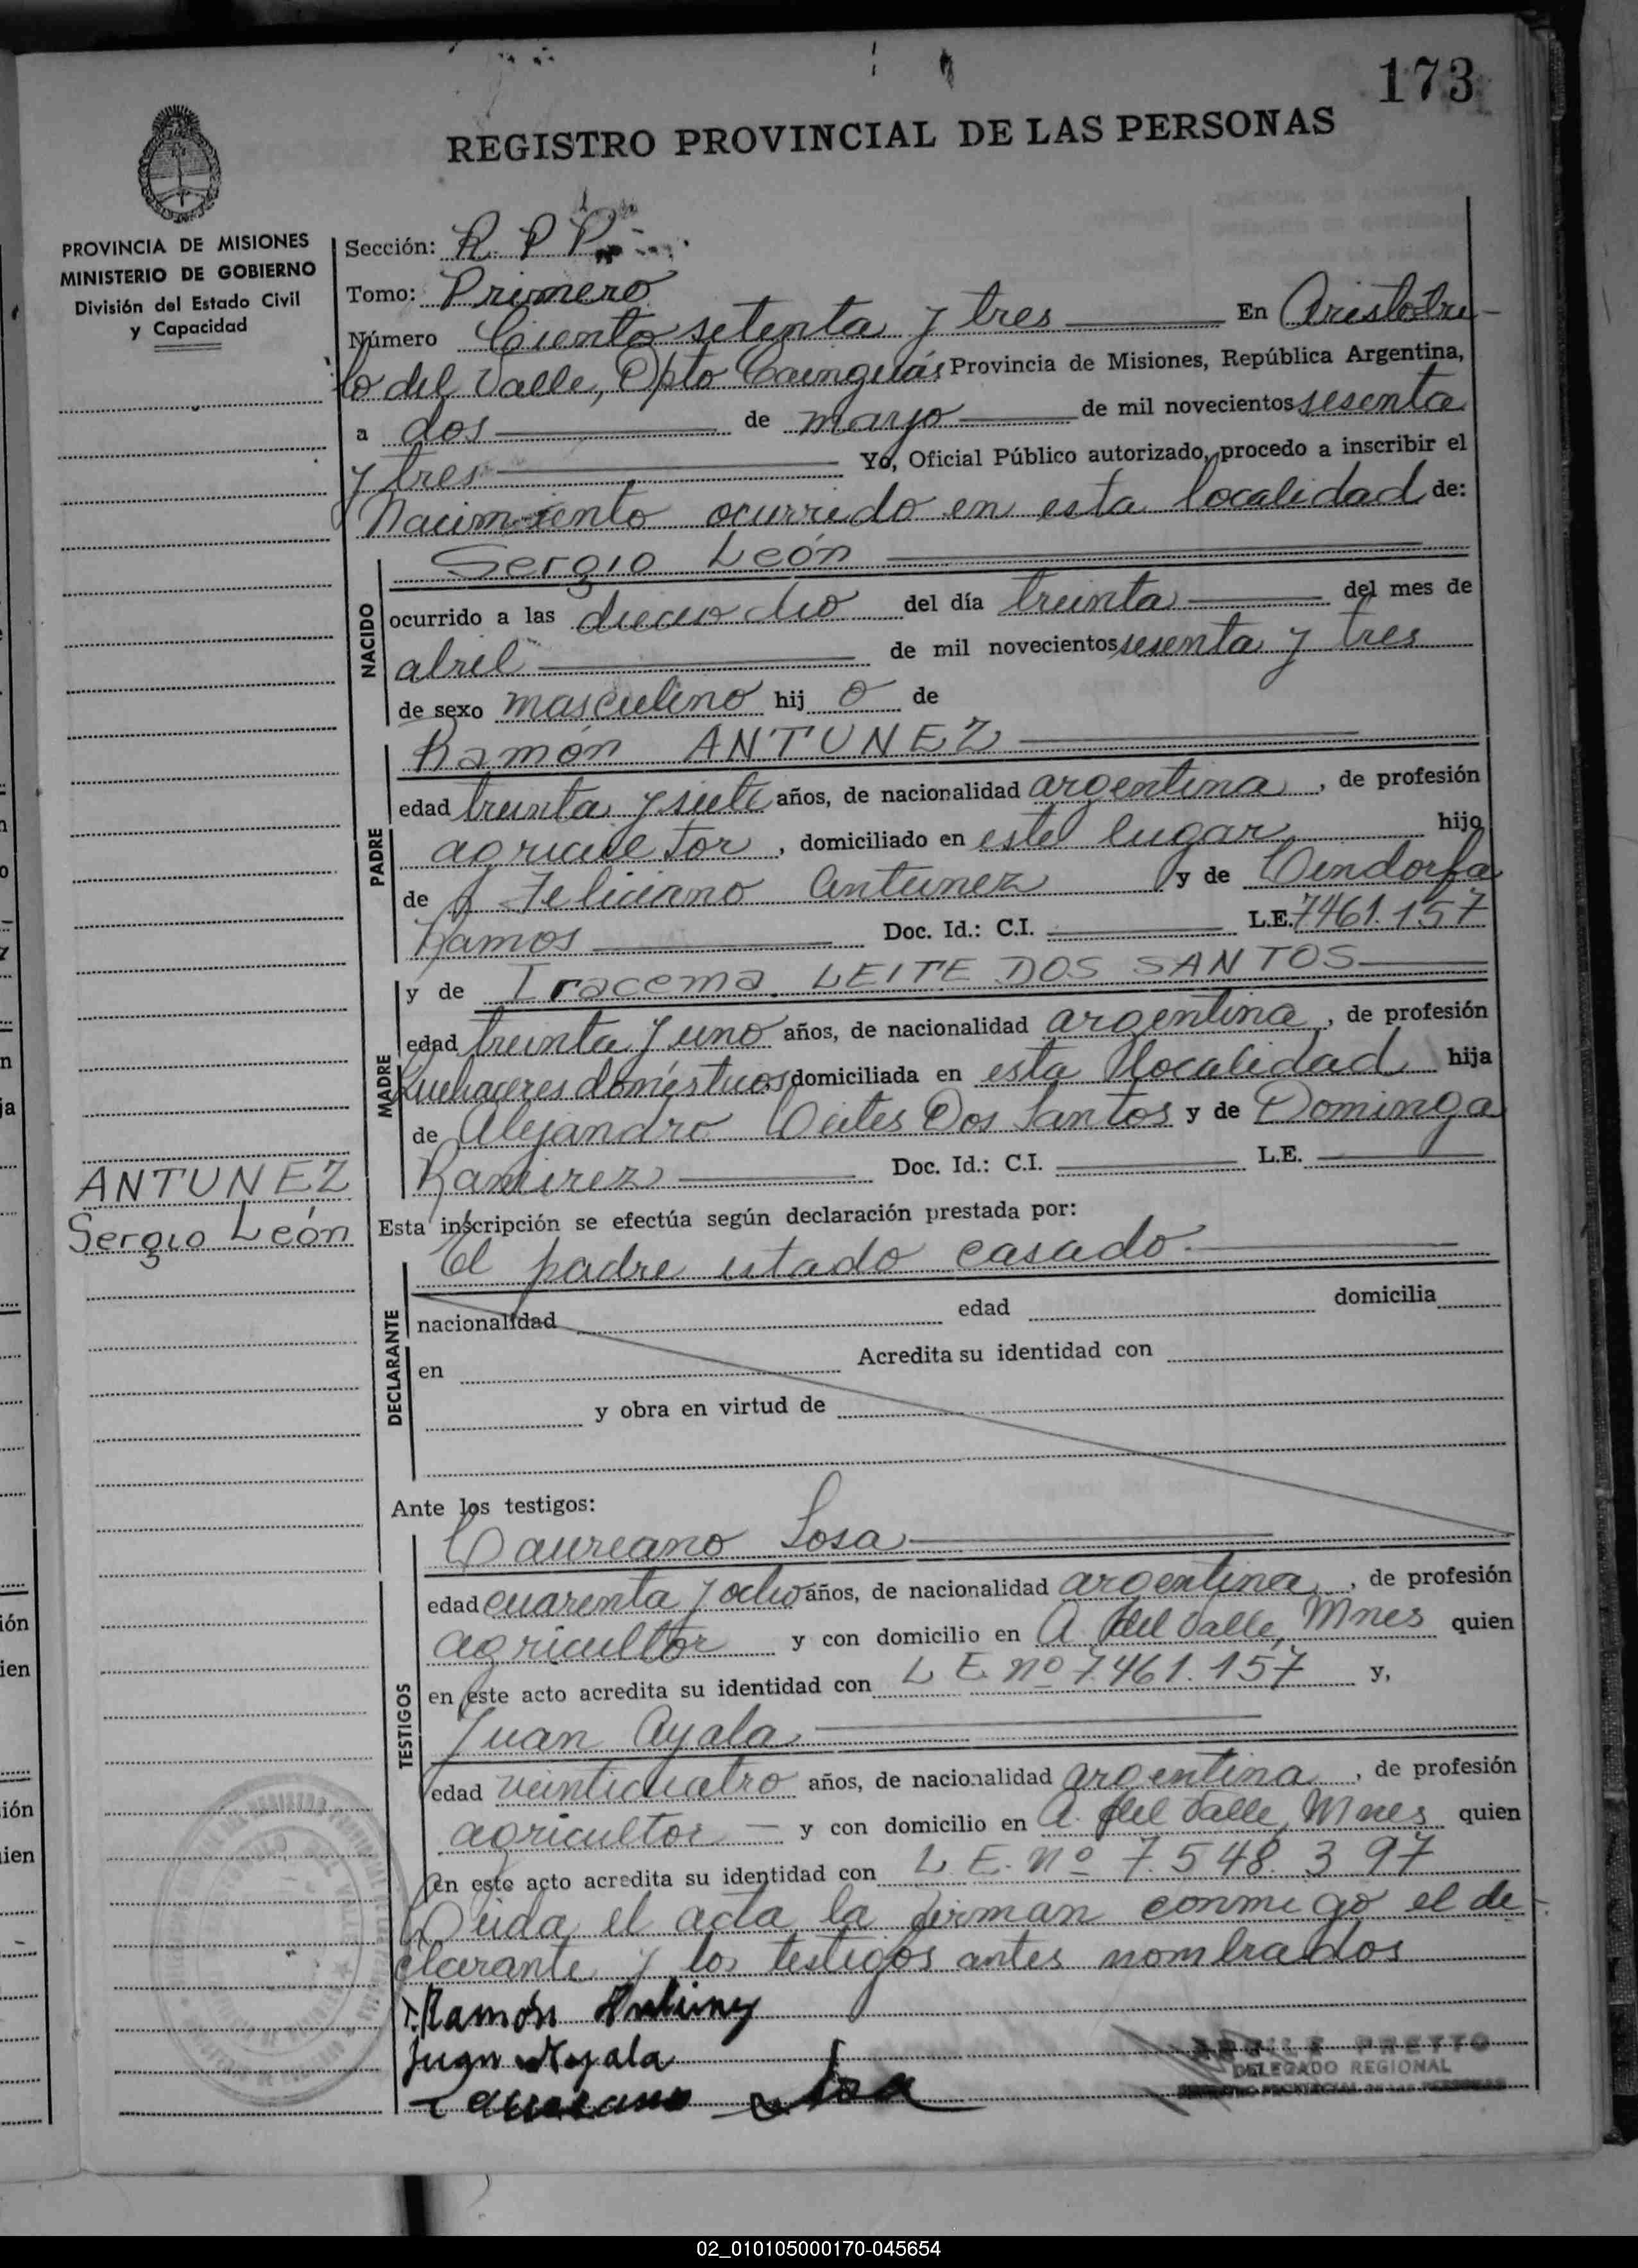 173
REGISTRO PROVINCIAL DE LAS PERSONAS
PROVINCIA DE MISIONES
MINISTERIO DE GOBIERNO
División del Estado Civil
y Capacidad
Sección: R. P P.
Tomo: Primero
Número Ciento setenta y tres En Aristobu-
lo del Valle, Dpto Cainguás Provincia de Misiones, República Argentina,
a dos de mayo de mil novecientos sesenta
y tres Yo, Oficial Público autorizado, procedo a inscribir el
Nacimiento ocurrido en esta localidad de:
NACIDO
Sergio León
ocurrido a las dieciocho del día treinta del mes de
abril de mil novecientos sesenta y tres
de sexo masculino hij o de
PADRE
Ramón ANTUNEZ
edad treinta y siete años, de nacionalidad argentina, de profesión
agricultor, domiciliado en este lugar hijo
de Feliciano Antunez y de Lindorfa
Ramos Doc. Id.: C.I. L.E. 7461.157
MADRE
y de Iracema LEITE DOS SANTOS
edad treinta y uno años, de nacionalidad argentina, de profesión
Quehaceres domésticos domiciliada en esta localidad hija
de Alejandro Leites Dos Santos y de Dominga
Ramirez Doc. Id.: C.I. L.E.
ANTUNEZ
Sergio León
Esta inscripción se efectúa según declaración prestada por:
DECLARANTE
El padre estado casado.
nacionalidad edad domicilia
en Acredita su identidad con
y obra en virtud de
Ante los testigos:
TESTIGOS
Laureano Sosa
edad cuarenta y ocho años, de nacionalidad argentina, de profesión
agricultor y con domicilio en A. del Valle, Mnes quien
en este acto acredita su identidad con L E. nº 7.461.157 y,
Juan Ayala
edad veinticuatro años, de nacionalidad argentina, de profesión
agricultor y con domicilio en A. del Valle, Mnes quien
en este acto acredita su identidad con L. E. nº 7.548.397
Leida el acta la firman conmigo el de-
clarante y los testigos antes nombrados
Ramón Antunez
Juan Ayala
Laureano Sosa
PRETTO
DELEGADO REGIONAL
REGISTRO PROVINCIAL DE LAS PERSONAS
02_010105000170-045654